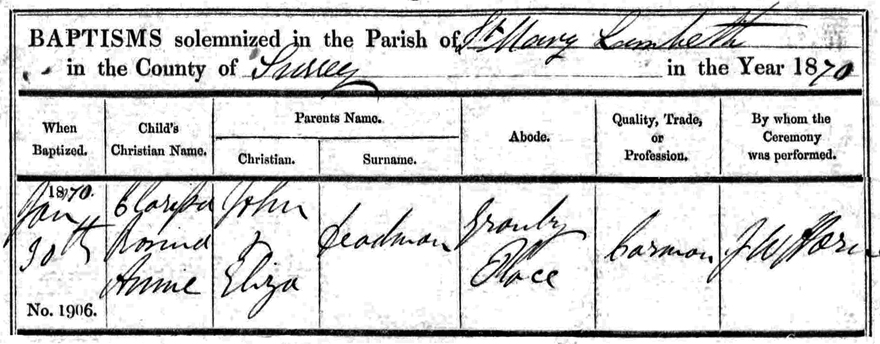 BAPTISMS solemnized in the Parish of St Mary Lambeth
in the County of Surrey in the Year 1870
When Baptized.
Child's Christian Name.
Parents Name.
Christian.
Surname.
Abode.
Quality, Trade, or Profession.
By whom the Ceremony was performed.
1870.
Jany
30th
No. 1906.
Clarissa
Annie
John
&
Eliza
Deadman
Granby
Place
Carman
J W